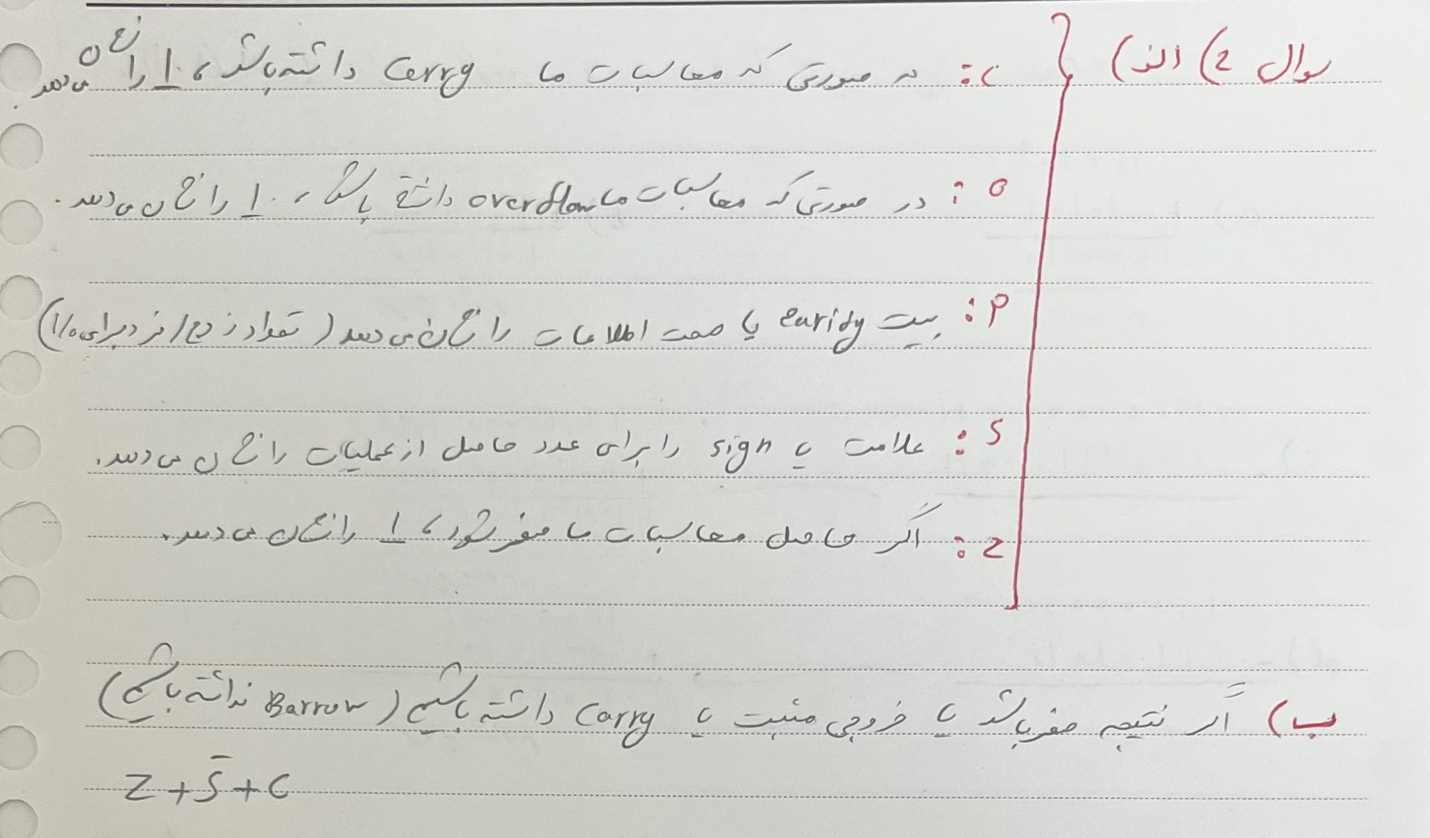 سوال 2) الف) C: در صورتی که محاسبات ما Cerry داشته باشد، 1 را نشان می‌دهد.
O: در صورتی که محاسبات ما overflow داشته باشد، 1 را نشان می‌دهد.
P: بیت parity یا صحت اطلاعات را نشان می‌دهد (تعداد زوج/فرد برای 1/0)
S: علامت یا sign را برای عدد حاصل از عملیات را نشان می‌دهد.
Z: اگر حاصل محاسبات ما صفر شود، 1 را نشان می‌دهد.
ب) اگر نتیجه صفر باشد یا خروجی مثبت یا Carry داشته باشیم (Barrow نداشته باشیم)
Z + S̅ + C